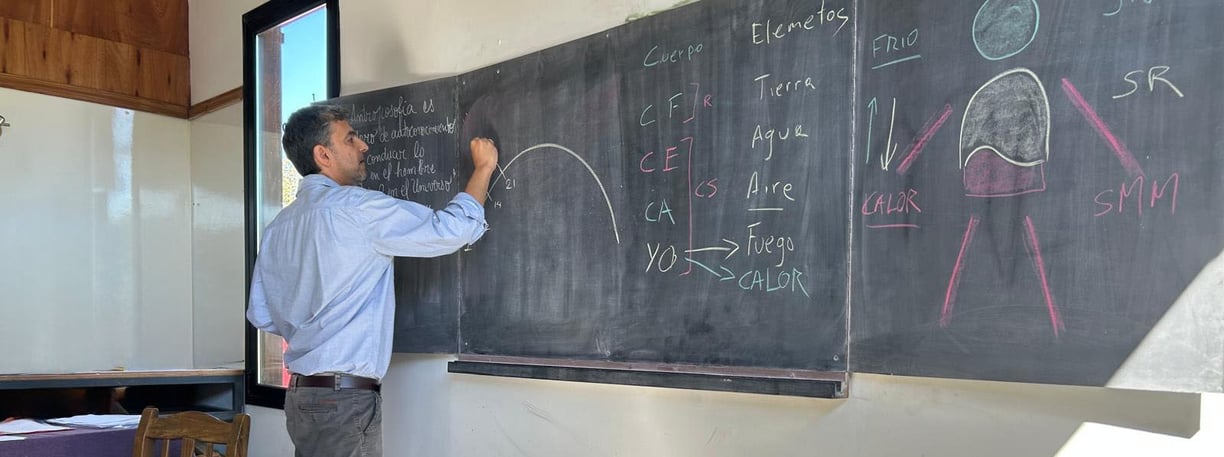 Antroposofía es
de autoconocimiento
conducir lo
en el hombre
en el Universo
21
14
Cuerpo
Elemetos
CF
R
Tierra
CE
CS
Agua
CA
Aire
YO
Fuego
CALOR
FRIO
CALOR
SR
SMM